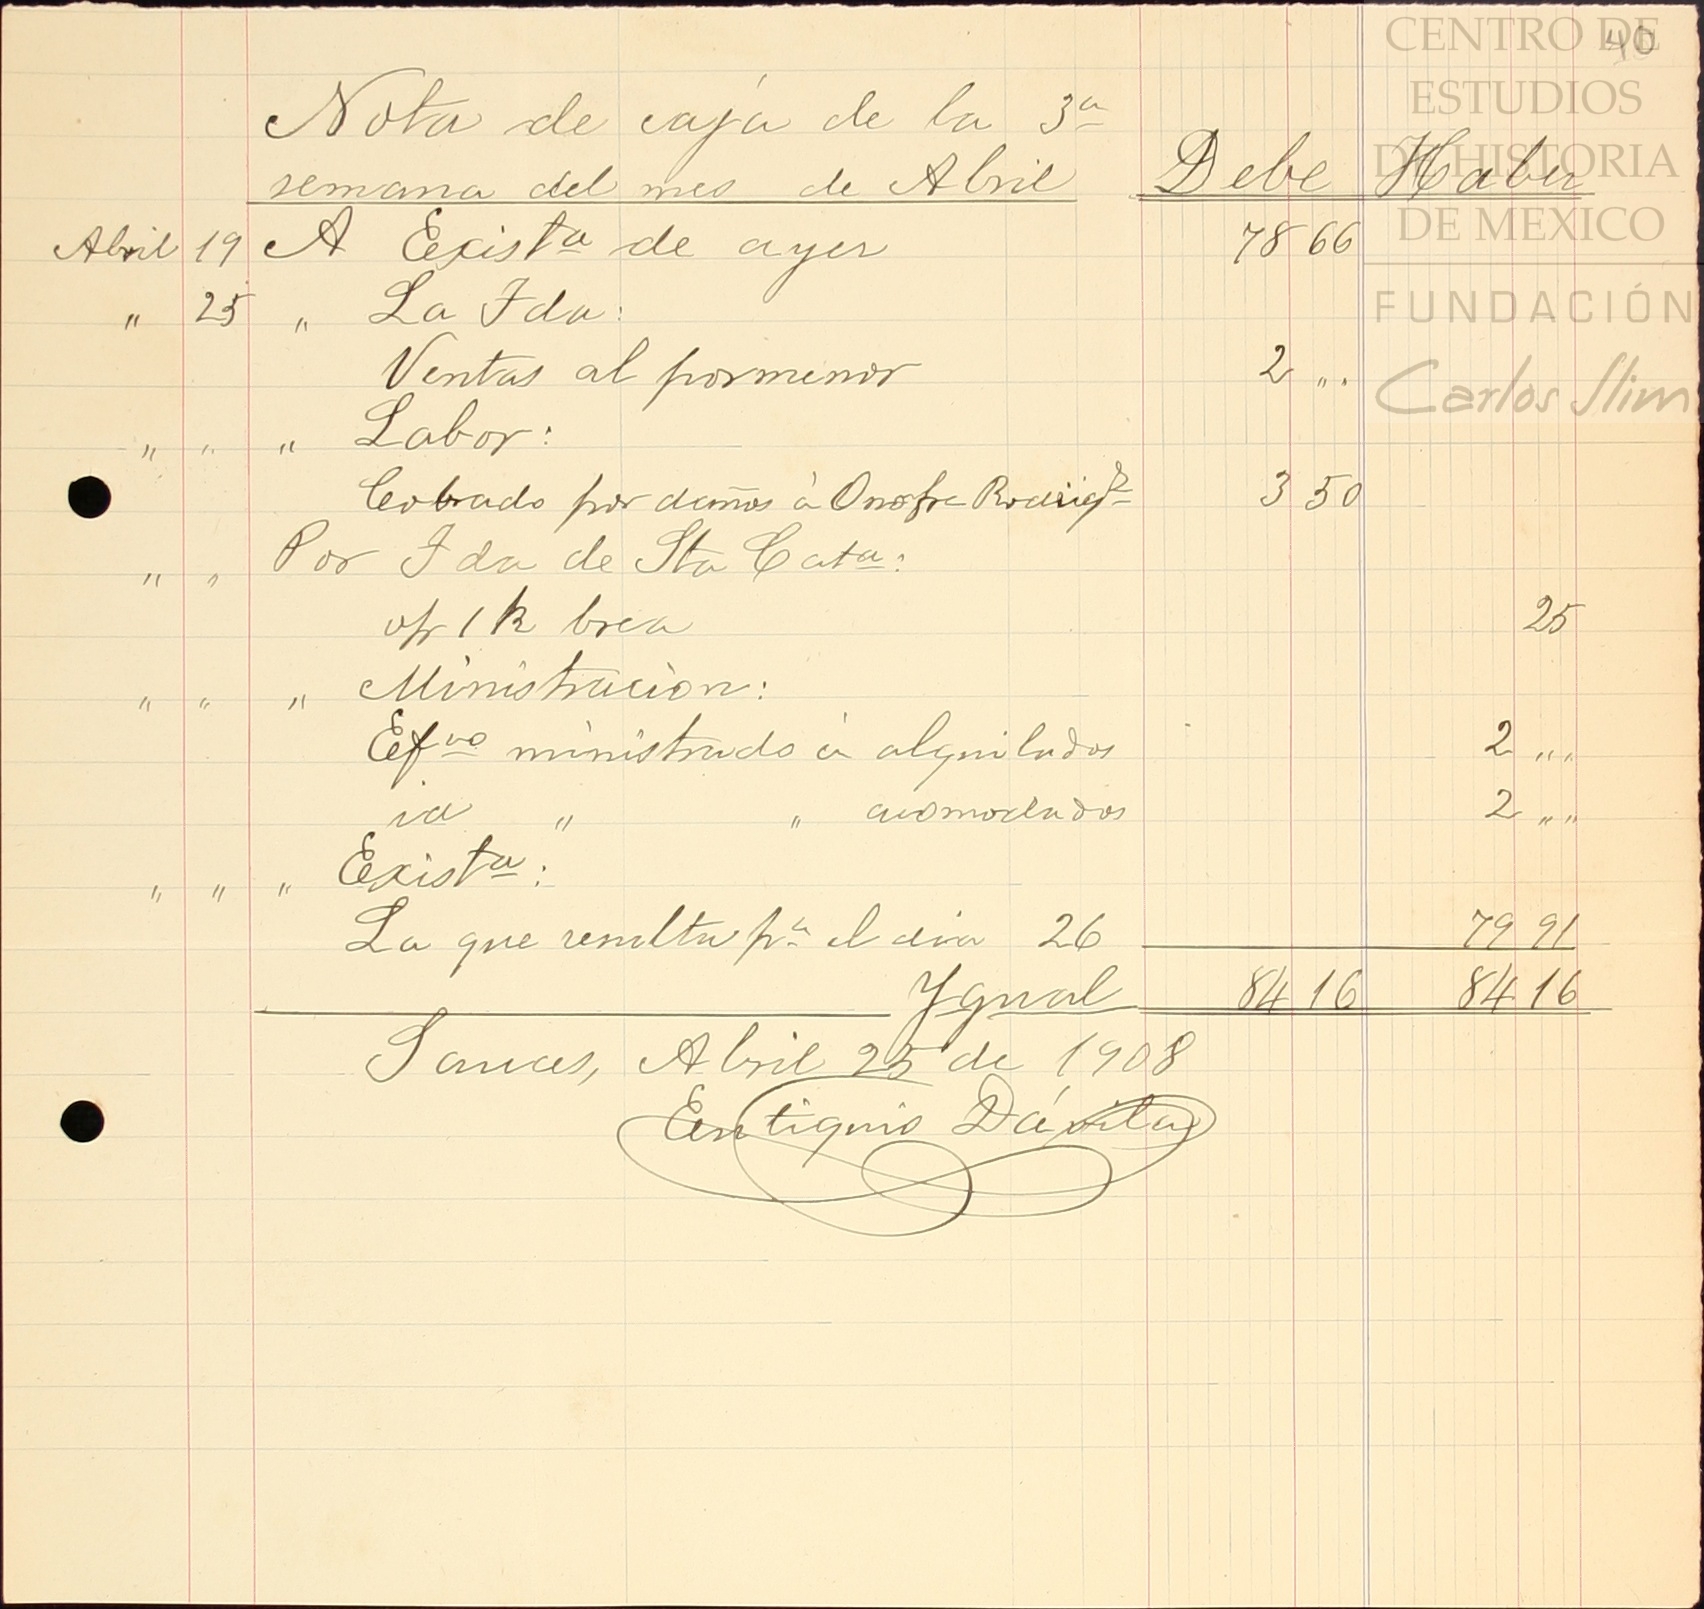 40
CENTRO DE
ESTUDIOS
DE HISTORIA
DE MEXICO
FUNDACIÓN
Carlos Slim
Nota de caja de la 3ª
semana del mes de Abril Debe Haber
Abril 19 A Existª de ayer 78 66
" 25 " La Fda:
Ventas al pormenor 2 "
" " " Labor:
Cobrado por daños à Onofre Rodrigz 3 50
" " Por Fda de Sta Catª:
1 k brea 25
" " " Ministracion:
Efvo ministrado à alquilados 2 "
id " " acomodados 2 "
" " " Existª:
La que resulta pª el dia 26 79 91
Ygual 84 16 84 16
Sauces, Abril 25 de 1908
Eutiquio Dávila